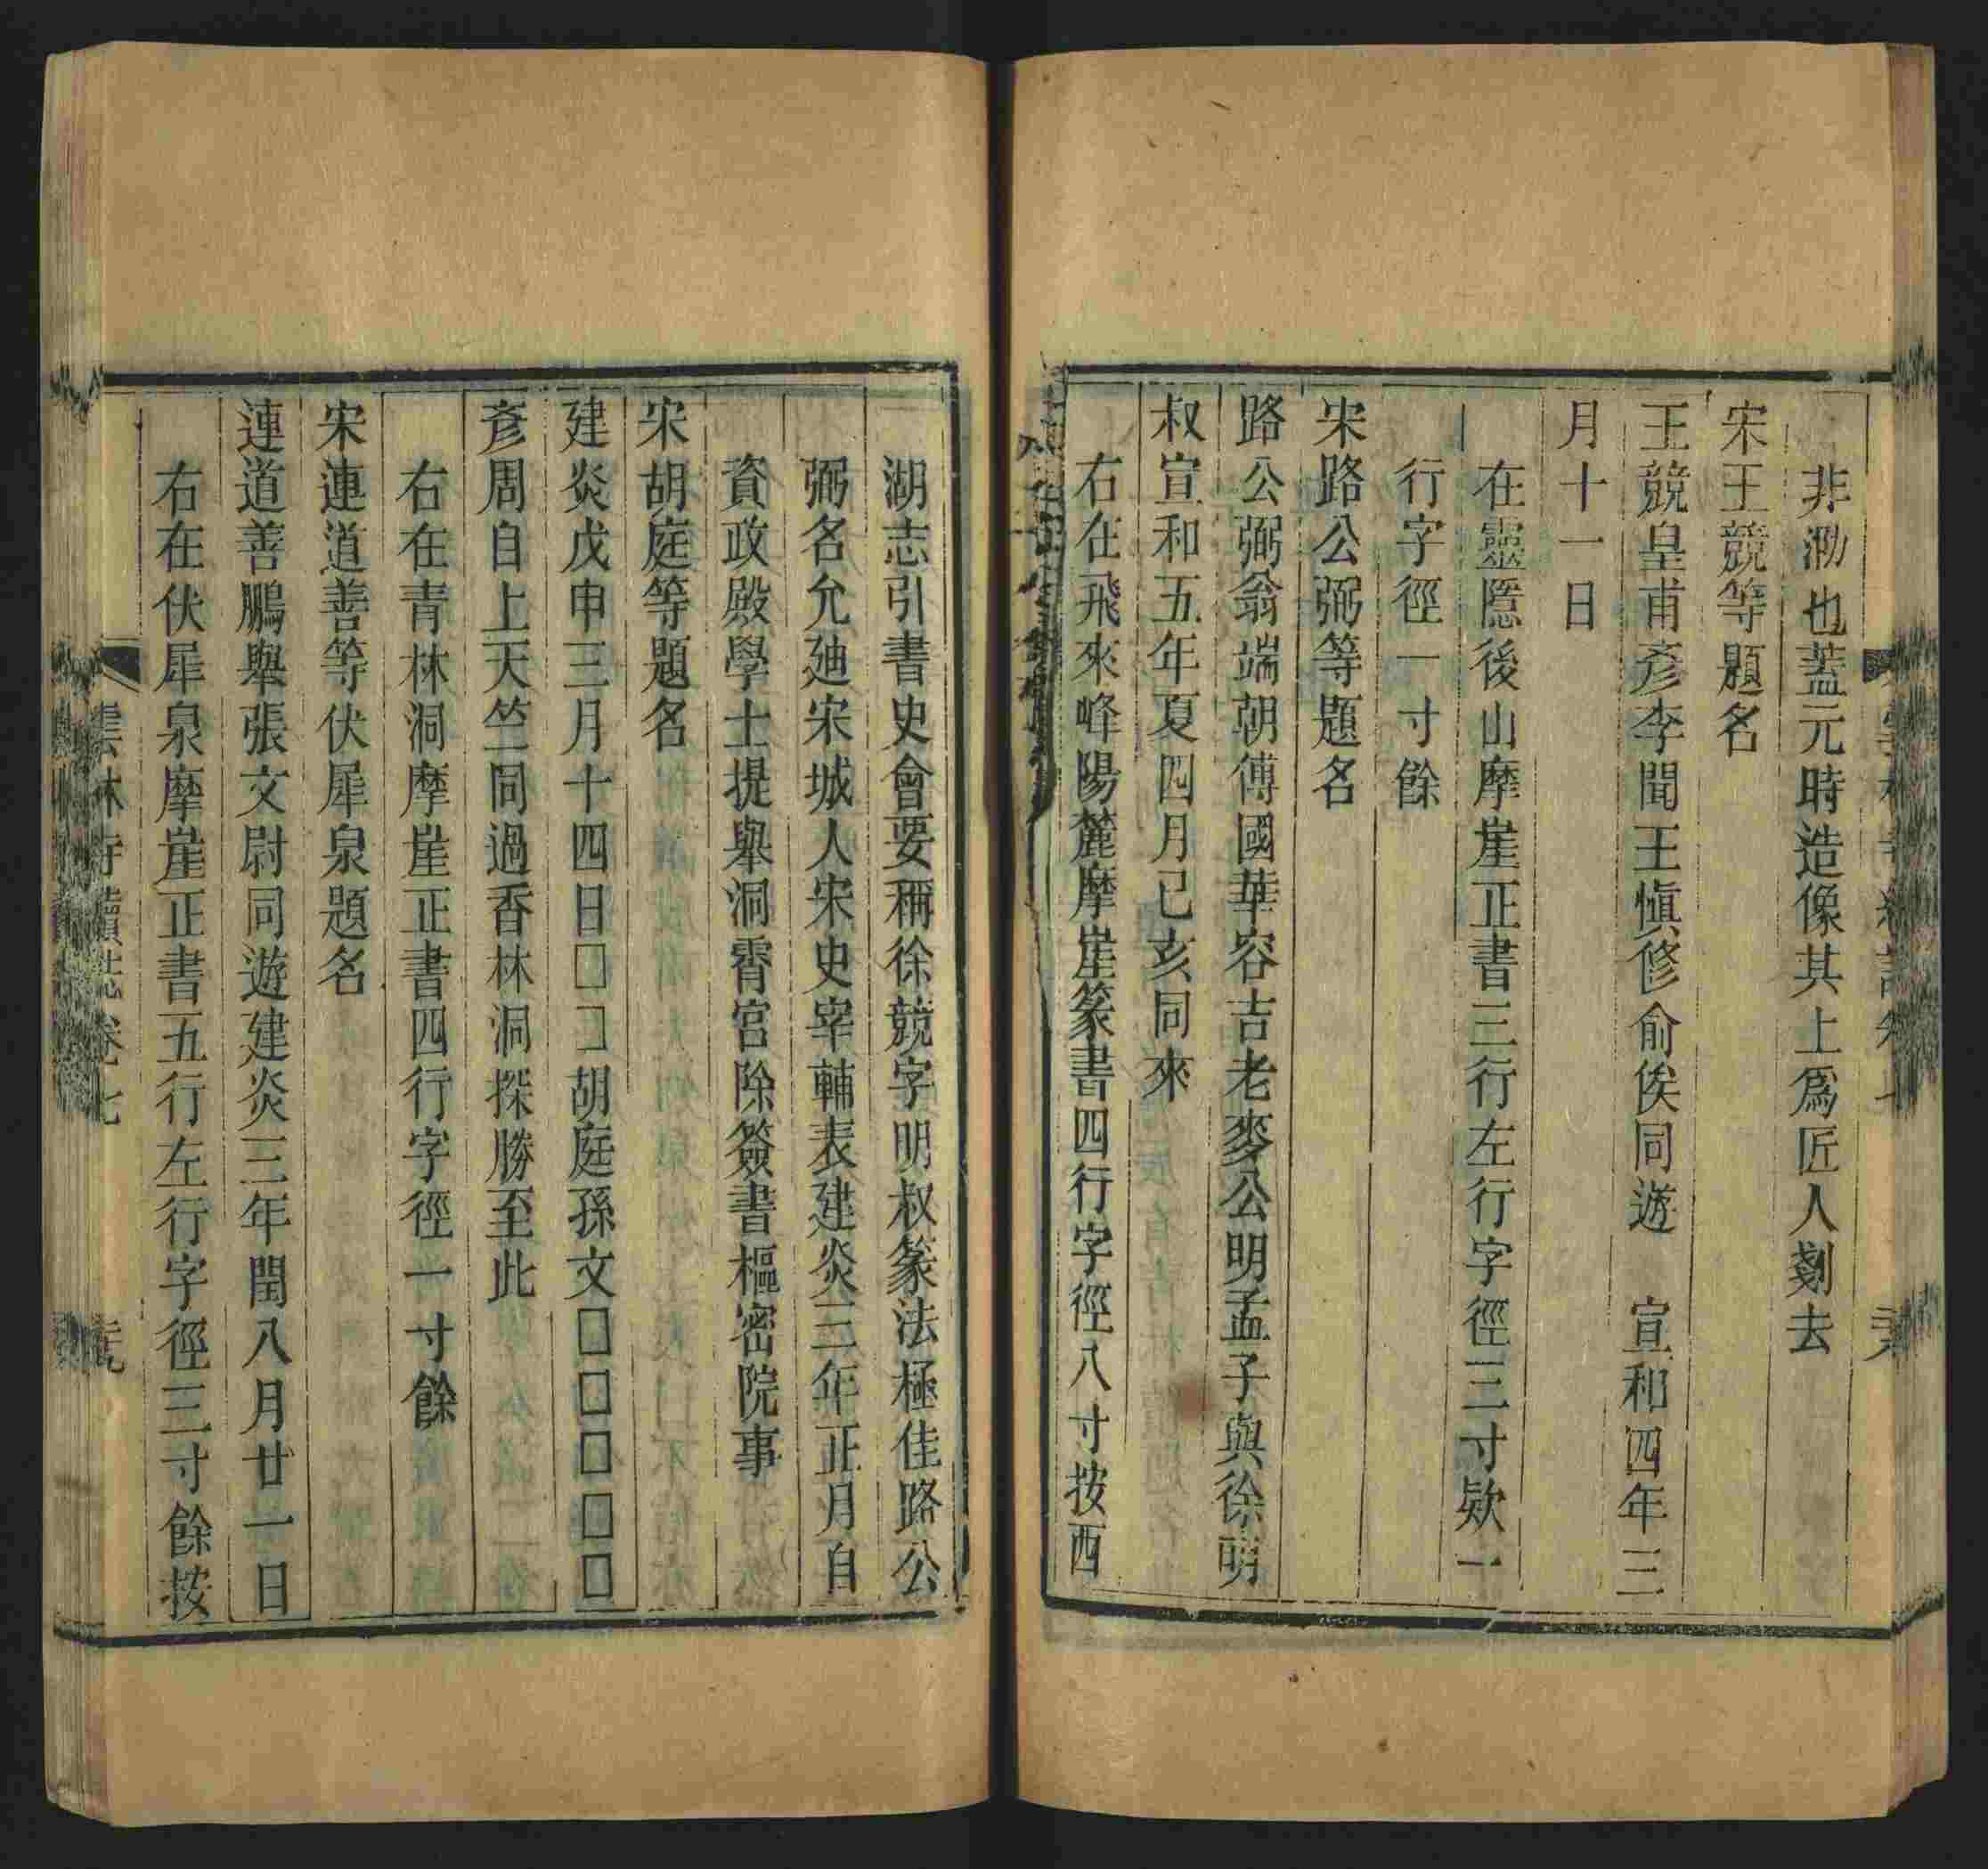 非泐也蓋元時造像其上爲匠人剗去
宋王競等題名
王競皇甫彥李聞王愼修俞俟同遊　宣和四年三
月十一日
在靈隱後山摩崖正書三行左行字徑三寸欵一
行字徑一寸餘
宋路公弼等題名
路公弼翁端朝傅國華容吉老麥公明孟子與徐明
叔宣和五年夏四月已亥同來
右在飛來峰陽麓摩崖篆書四行字徑八寸按西
湖志引書史會要稱徐競字明叔篆法極佳路公
弼名允廸宋城人宋史宰輔表建炎三年正月自
資政殿學士提舉洞霄宮除簽書樞密院事
宋胡庭等題名
建炎戊申三月十四日□□胡庭孫文□□□□□
彥周自上天竺同過香林洞探勝至此
右在青林洞摩崖正書四行字徑一寸餘
宋連道善等伏犀泉題名
連道善鵬舉張文尉同遊建炎三年閏八月廿一日
右在伏犀泉摩崖正書五行左行字徑三寸餘按
雲林寺續志卷七